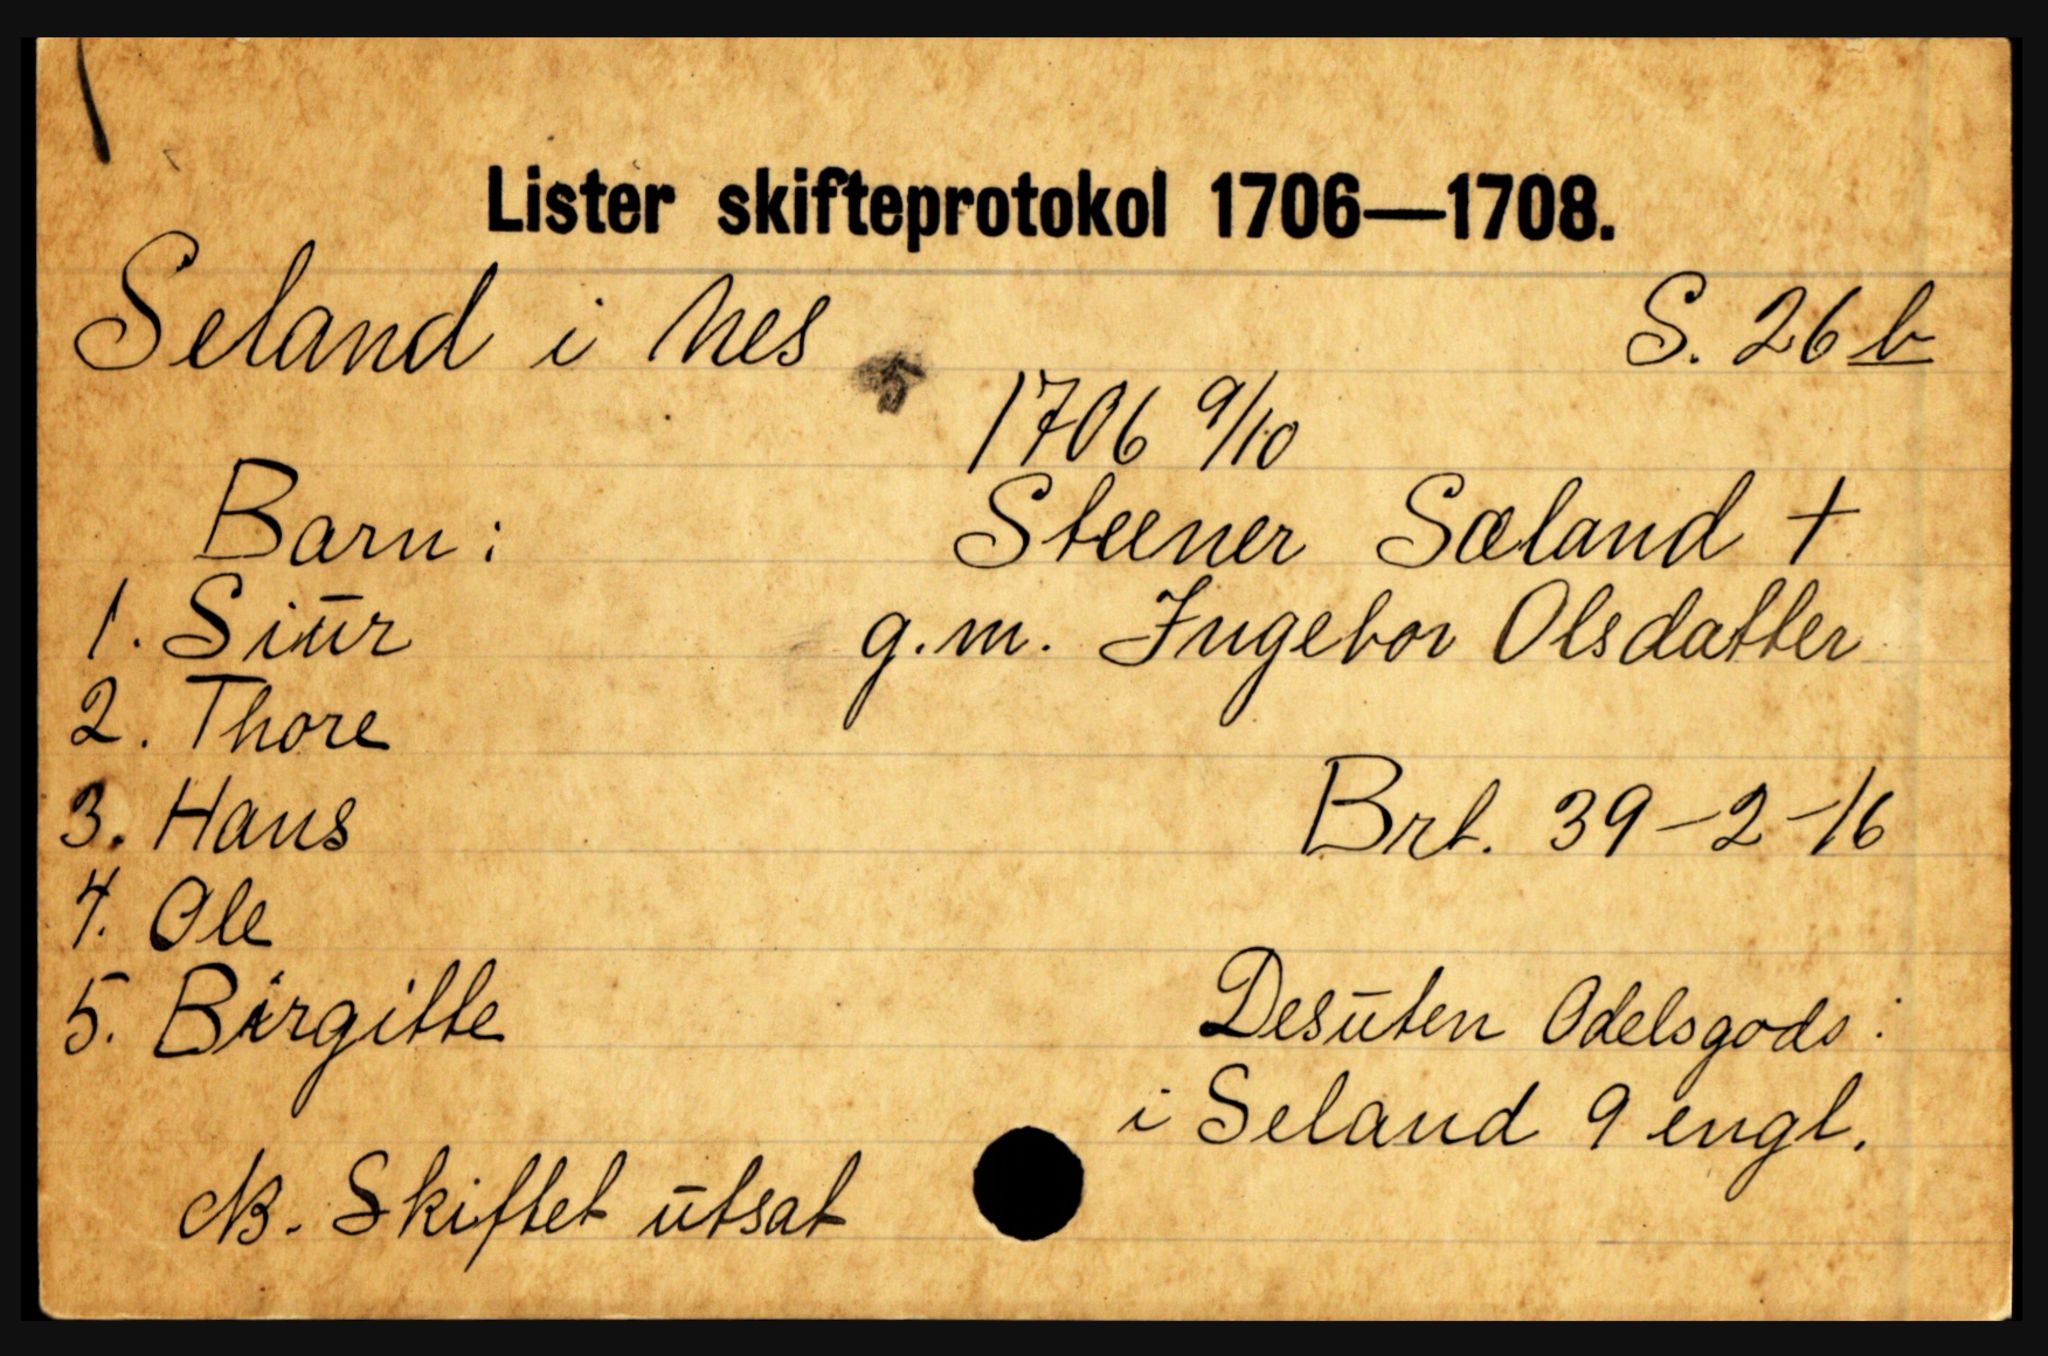 Lister skifteprotokol 1706—1708.
Seland i Nes S. 26 b
1706 9/10
Barn: Steener Sæland †
1. Siūr g.m. Ingebor Olsdatter
2. Thore
3. Hans Brt. 39-2-16
4. Ole
5. Birgitte Desūten Odelsgods:
i Seland 9 engl.
NB. Skiftet ūtsat